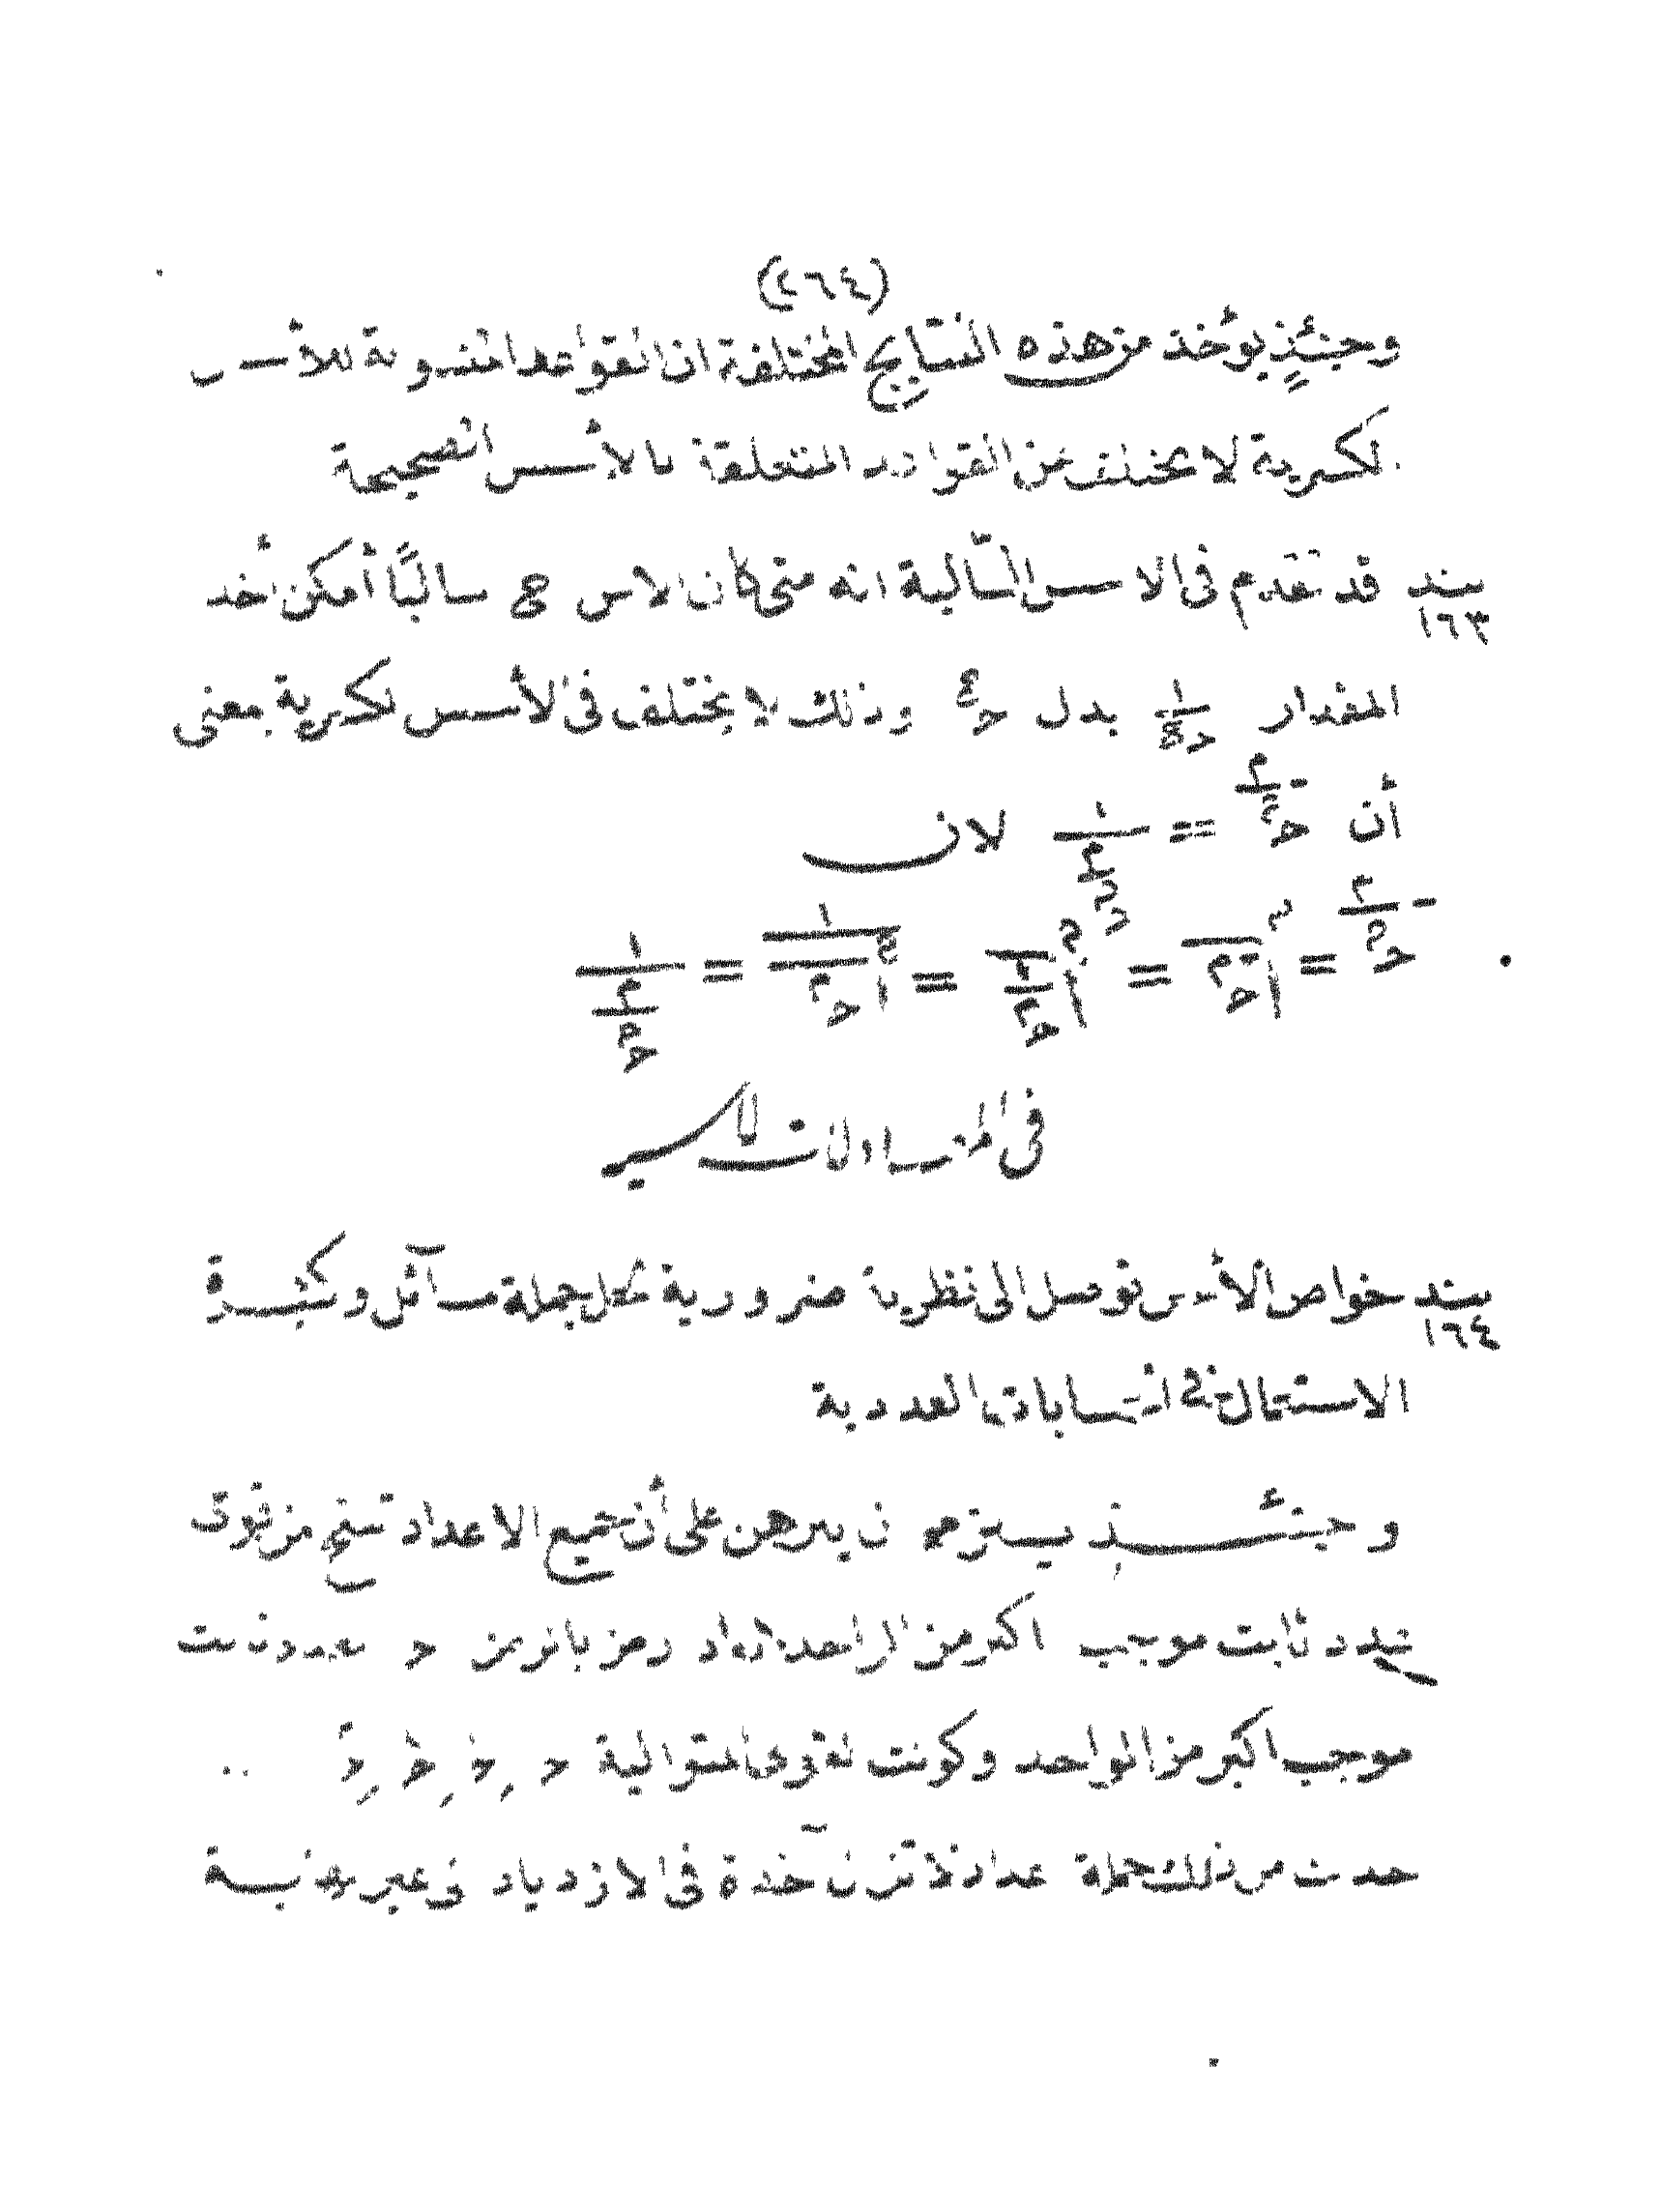 (٢٦٤)
وحينئذ يؤخذ من هذه النتايج المختلفة ان القواعد المنسوبة للأسس
الكسرية لا تختلف عن القواعد المتعلقة بالأسس الصحيحة
بند ١٦٣ قد تقدم فى الاسس السالبة انه متى كان الاس سالبًا أمكن أخذ
المقدار بدل وذلك لا يختلف فى الأسس الكسرية بمعنى
أن = لان
= = = =
فى المتساويات الأسية
بند ١٦٤ خواص الأسس توصل الى نظرية ضرورية لحل جملة مسآئل وكثيرة
الاستعمال فى الحسابات العددية
وحينئذ يستلزم ان يبرهن على أن جميع الاعداد تنتج من قوى
عدد ثابت موجب اكبر من الواحد
موجب اكبر من الواحد وكونت القوى المتوالية حـ , حـ , حـ , حـ ..
حدث من ذلك جملة اعداد لا تزال آخذة فى الازدياد الى غير نهاية